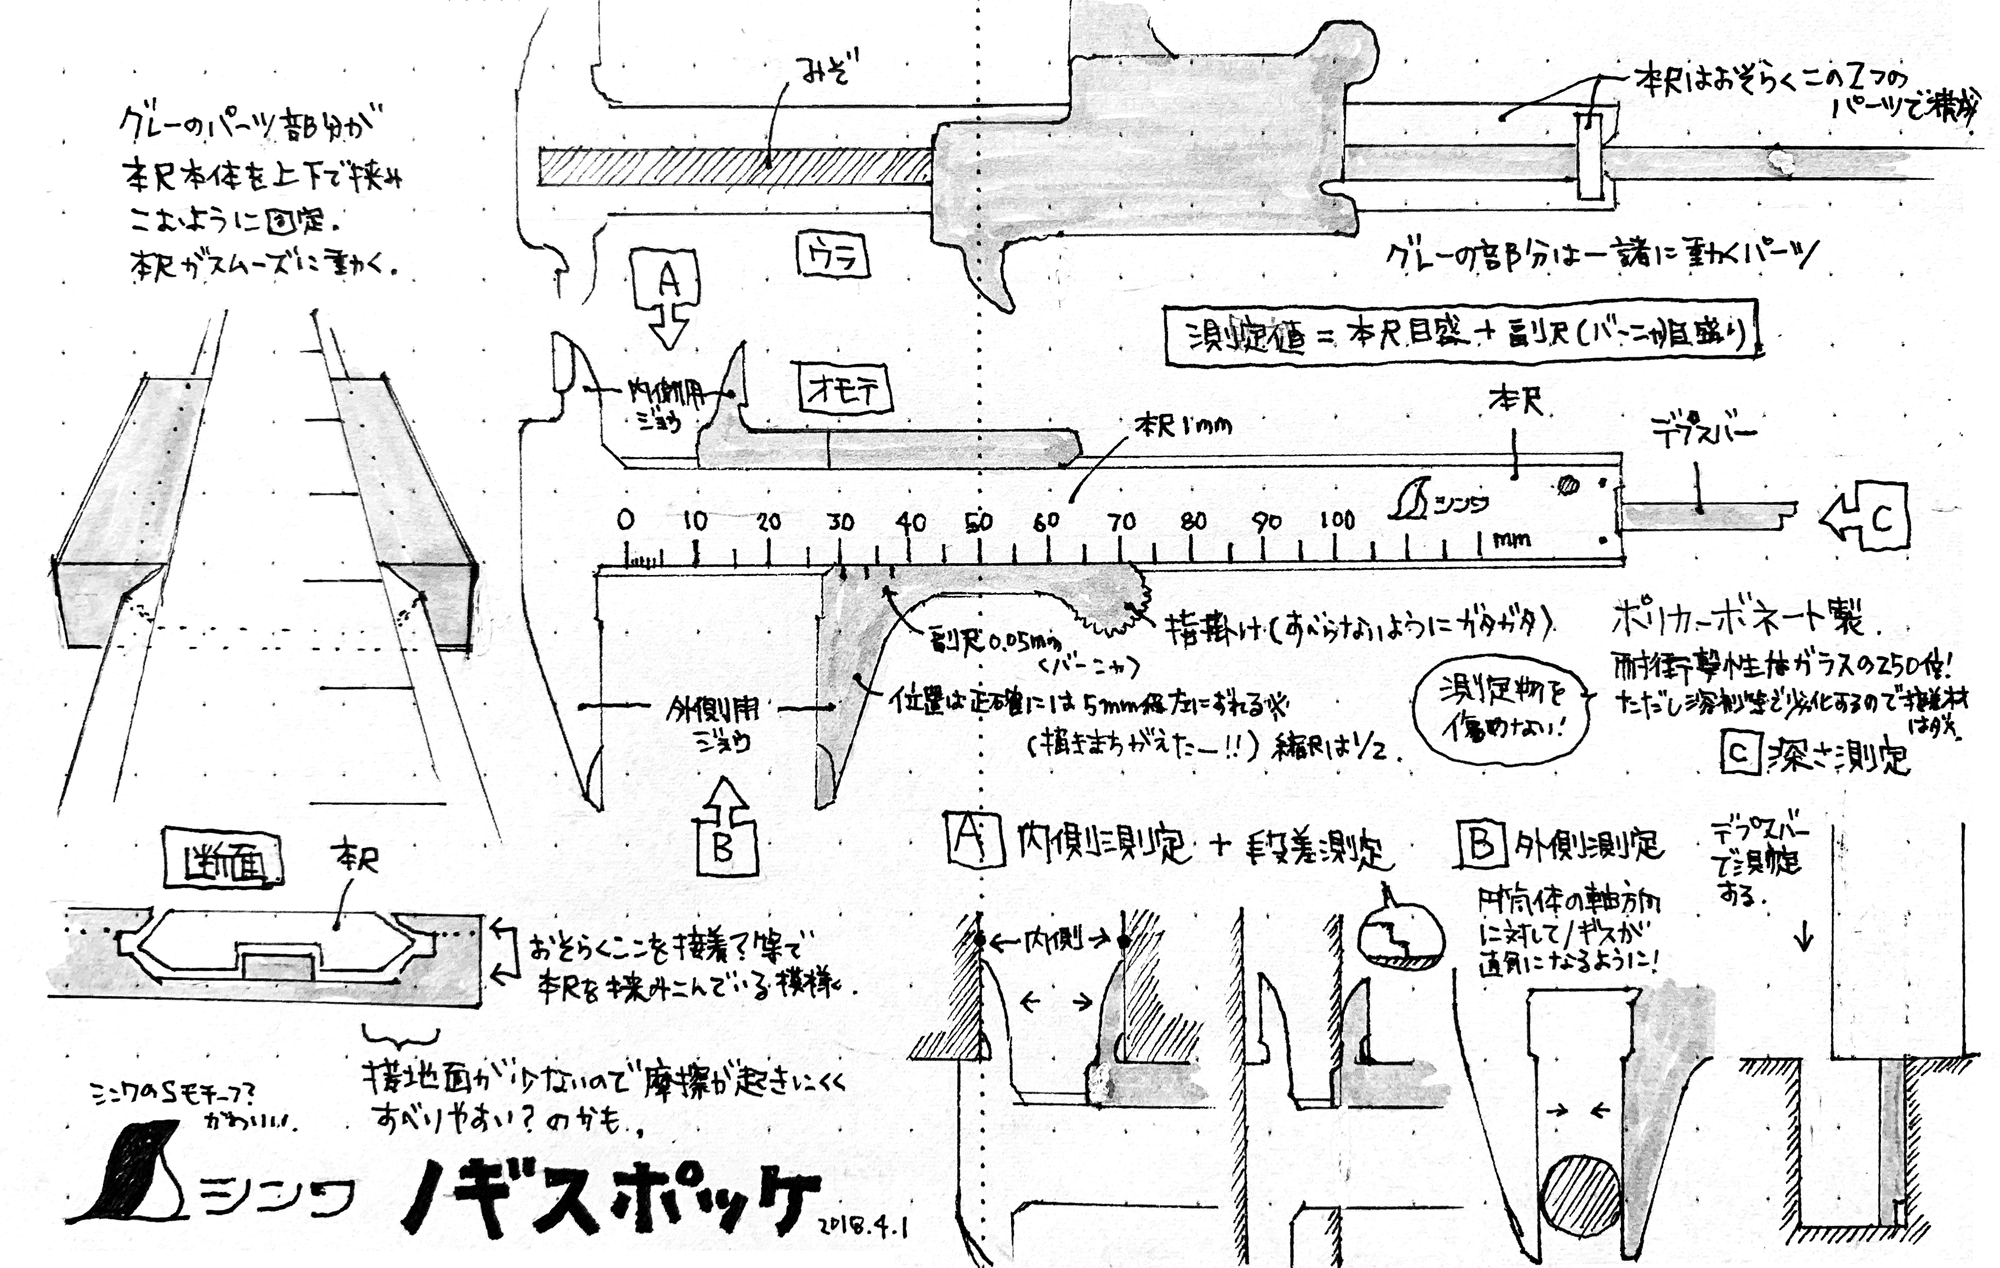 グレーのパーツ部分が
本尺本体を上下で挟み
こむように固定.
本尺がスムーズに動く.
みぞ
本尺はおそらくこの2つの
パーツで構成
ウラ
グレーの部分は一諸に動くパーツ
A
測定値=本尺目盛+副尺(バーニャ目盛り)
内側用
ジョウ
オモテ
本尺1mm
本尺
デプスバー
0 10 20 30 40 50 60 70 80 90 100
シンワ
mm
C
副尺0.05mm
(バーニャ)
指掛け(すべらないようにガタガタ)
位置は正確には5mm程左にずれる※
(描きまちがえたー!!)縮尺は1/2.
外側用
ジョウ
B
ポリカーボネート製.
耐衝撃性はガラスの250倍!
ただし溶剤等で劣化するので接着材
はダメ.
測定物を
傷めない!
断面
本尺
おそらくここを接着?等で
本尺を挟みこんでいる模様.
接地面が少ないので摩擦が起きにくく
すべりやすい?のかも.
シンワのSモチーフ?
かわいい.
シンワ ノギスポッケ
2018.4.1
A 内側測定+段差測定
内側
B 外側測定
円筒体の軸方向
に対してノギスが
直角になるように!
C 深さ測定
デプスバー
で測定
する.